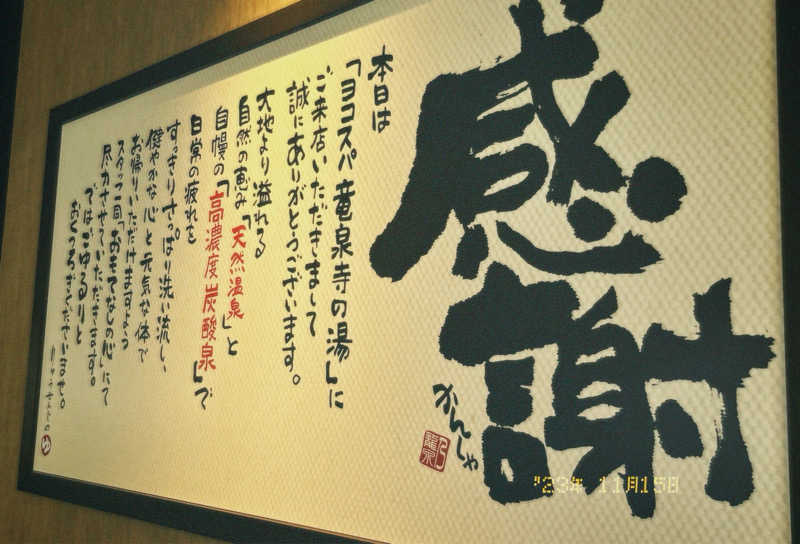 感謝
かんしゃ
本日は
「ヨコスパ 竜泉寺の湯」に
ご来店いただきまして
誠にありがとうございます。
大地より溢れる
自然の恵み「天然温泉」と
自慢の「高濃度炭酸泉」で
日常の疲れを
すっきりさっぱり洗い流し、
健やかな心と元気な体で
お帰りいただけますよう
スタッフ一同「おもてなしの心」にて
尽力させていただきます。
ではごゆるりと
おくつろぎくださいませ。
りゅうせんじの
'23年 11月15日